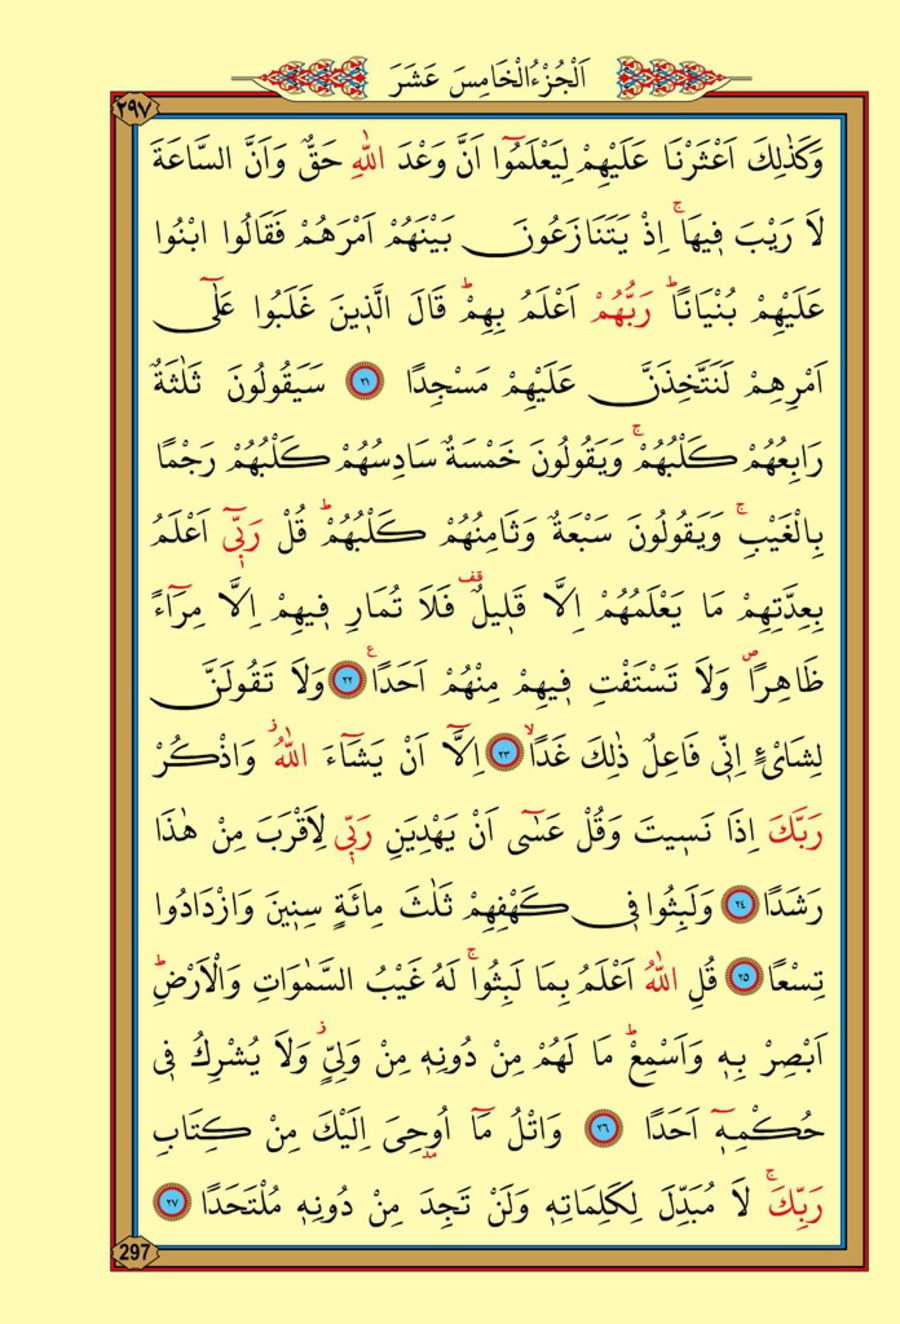 اَلْجُزْءُ الْخَامِسَ عَشَرَ
٢٩٧
وَكَذٰلِكَ اَعْثَرْنَا عَلَيْهِمْ لِيَعْلَمُٓوا اَنَّ وَعْدَ اللّٰهِ حَقٌّ وَاَنَّ السَّاعَةَ
لَا رَيْبَ ف۪يهَاۚ اِذْ يَتَنَازَعُونَ بَيْنَهُمْ اَمْرَهُمْ فَقَالُوا ابْنُوا
عَلَيْهِمْ بُنْيَانًاۜ رَبُّهُمْ اَعْلَمُ بِهِمْۜ قَالَ الَّذ۪ينَ غَلَبُوا عَلٰٓى
اَمْرِهِمْ لَنَتَّخِذَنَّ عَلَيْهِمْ مَسْجِدًا ٢١ سَيَقُولُونَ ثَلٰثَةٌ
رَابِعُهُمْ كَلْبُهُمْۚ وَيَقُولُونَ خَمْسَةٌ سَادِسُهُمْ كَلْبُهُمْ رَجْمًا
بِالْغَيْبِۚ وَيَقُولُونَ سَبْعَةٌ وَثَامِنُهُمْ كَلْبُهُمْۜ قُلْ رَبّ۪ٓي اَعْلَمُ
بِعِدَّتِهِمْ مَا يَعْلَمُهُمْ اِلَّا قَل۪يلٌ قف فَلَا تُمَارِ ف۪يهِمْ اِلَّا مِرَٓاءً
ظَاهِرًاۖ وَلَا تَسْتَفْتِ ف۪يهِمْ مِنْهُمْ اَحَدًا ع ٢٢ وَلَا تَقُولَنَّ
لِشَايْءٍ اِنّ۪ي فَاعِلٌ ذٰلِكَ غَدًاۙ ٢٣ اِلَّٓا اَنْ يَشَٓاءَ اللّٰهُۘ وَاذْكُرْ
رَبَّكَ اِذَا نَس۪يتَ وَقُلْ عَسٰٓى اَنْ يَهْدِيَنِ رَبّ۪ي لِاَقْرَبَ مِنْ هٰذَا
رَشَدًا ٢٤ وَلَبِثُوا ف۪ي كَهْفِهِمْ ثَلٰثَ مِائَةٍ سِن۪ينَ وَازْدَادُوا
تِسْعًا ٢٥ قُلِ اللّٰهُ اَعْلَمُ بِمَا لَبِثُواۚ لَهُ غَيْبُ السَّمٰوَاتِ وَالْاَرْضِۜ
اَبْصِرْ بِه۪ وَاَسْمِعْۜ مَا لَهُمْ مِنْ دُونِه۪ مِنْ وَلِيٍّۘ وَلَا يُشْرِكُ ف۪ي
حُكْمِه۪ٓ اَحَدًا ٢٦ وَاتْلُ مَٓا اُو۫حِيَ اِلَيْكَ مِنْ كِتَابِ
رَبِّكَۚ لَا مُبَدِّلَ لِكَلِمَاتِه۪ وَلَنْ تَجِدَ مِنْ دُونِه۪ مُلْتَحَدًا ٢٧
297